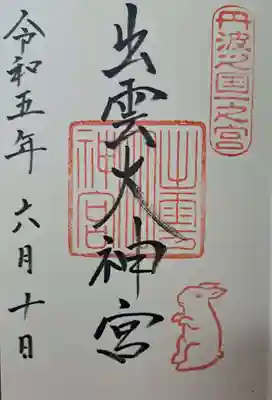 丹波國一之宮
出雲大神宮
出雲大神宮
令和五年 六月十日